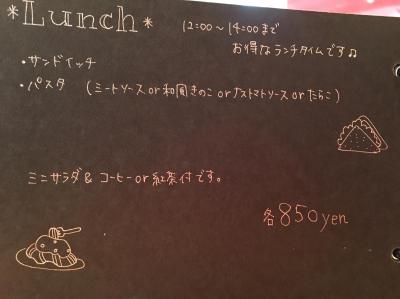 *Lunch*
12:00〜14:00まで
お得なランチタイムです♫
・サンドイッチ
・パスタ (ミートソース or 和風きのこ or ナストマトソース or たらこ)
ミニサラダ & コーヒー or 紅茶付です。
各850yen